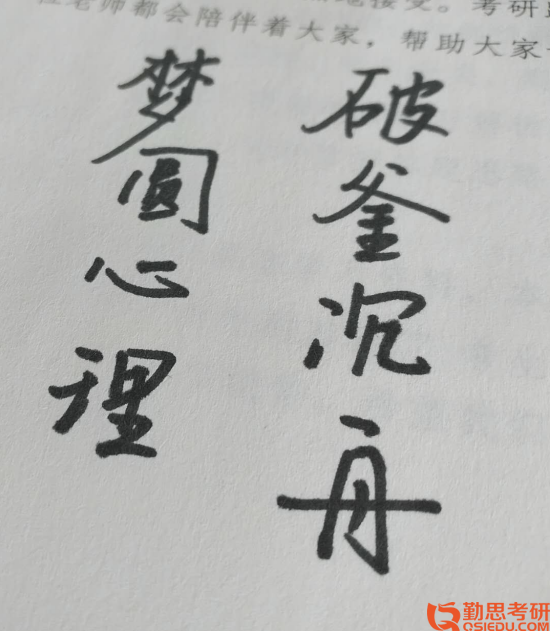 地接受。考研
老师都会陪伴着大家，帮助大家
破釜沉舟
梦圆心理
勤思考研
QSIEDU.COM